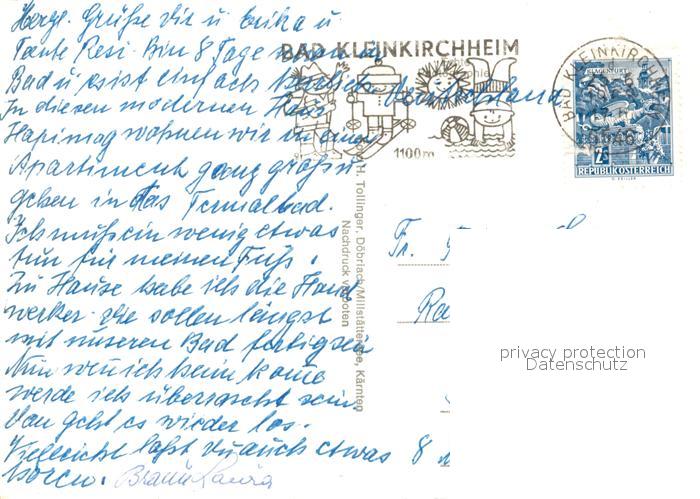 Herzl. Grüße Dir u Erika u
Tante Resi. Bin 8 Tage
Bad u es ist einfach herrlich.
In diesen modernen Haus
Hapimag wohnen wir in einen
Apartiment ganz groß u
gehen in das Termalbad.
Ich muß ein wenig etwas
tun für meinen Fuß.
Zu Hause habe ich die Hand
werker. die sollen längst
mit unseren Bad fertig sein
Nun wen ich heim kome
werde ich überrascht sein.
Dan geht es wieder los.
Vielleicht laßt du auch etwas
horen. Braun Laura
BAD KLEINKIRCHHEIM
1100 m
BAD KLEINKIRCH
9546
KLAGENFURT
2S
REPUBLIK ÖSTERREICH
Deutschland
H. Tollinger, Döbriach/Millstätter See, Kärnten
Nachdruck verboten
Fr.
Ra
8
privacy protection
Datenschutz